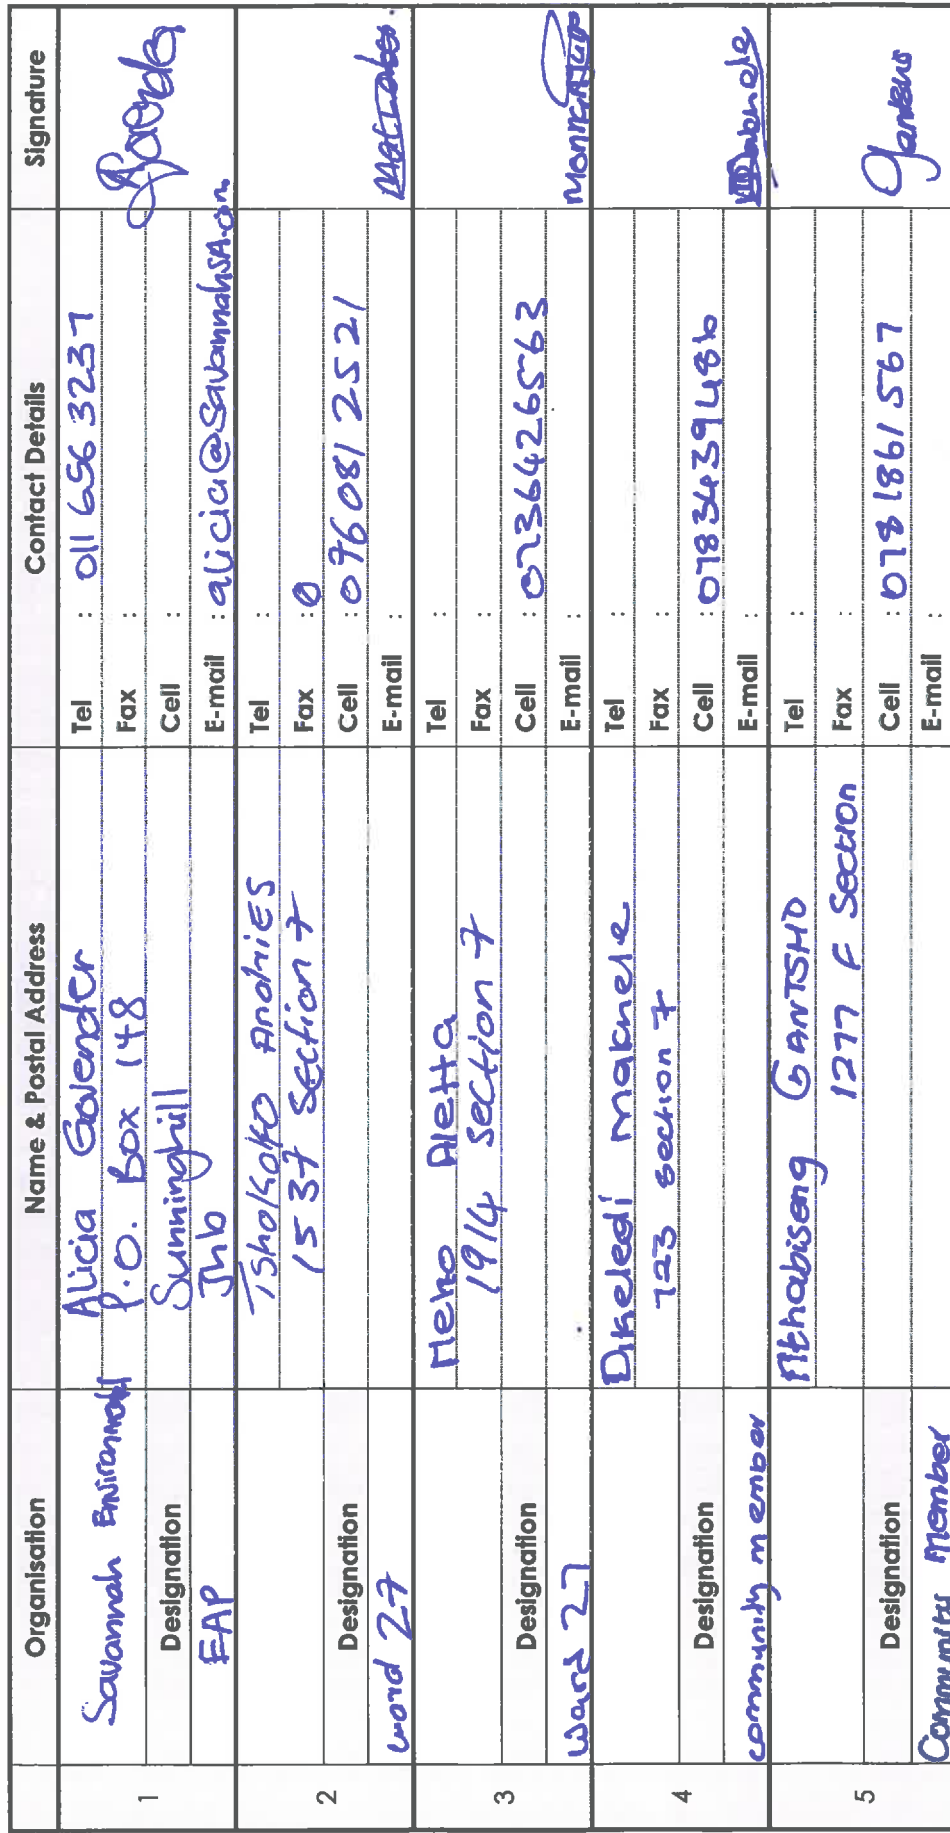 Organisation Name & Postal Address Contact Details Signature
1
Savannah Environmental
Designation
EAP
Alicia Govender
P.O. Box 148
Sunninghill
Jhb
Tel : 011 656 3237
Fax :
Cell :
E-mail : alicia@SavannahSA.com
2
Designation
ward 27
Tsholofo Andries
1537 Section 7
Tel :
Fax : 0
Cell : 076 081 2521
E-mail :
3
Designation
Ward 27
Meho Aletta
1914 section 7
Tel :
Fax :
Cell : 0736426563
E-mail :
4
Designation
community member
Dikeledi Maknele
723 section 7
Tel :
Fax :
Cell : 0783439486
E-mail :
5
Designation
Community Member
Nthabiseng GANTSHO
1277 F Section
Tel :
Fax :
Cell : 078 1861 567
E-mail